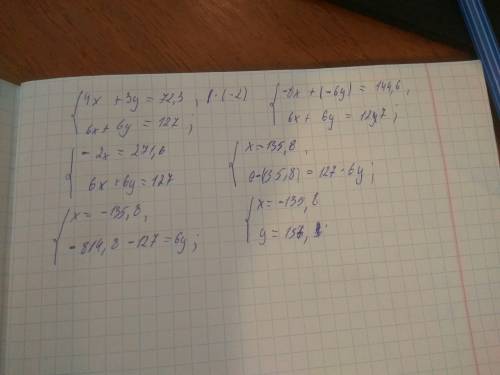 4x + 3y = 72,3 , | · (-2)
6x + 6y = 127 ;
-8x + (-6y) = 144,6 ,
6x + 6y = 127 ;
- 2x = 271,6
6x + 6y = 127
x = -135,8 ,
6·(-135,8) = 127 - 6y ;
x = -135,8 ,
- 814,8 - 127 = 6y ;
x = -135,8